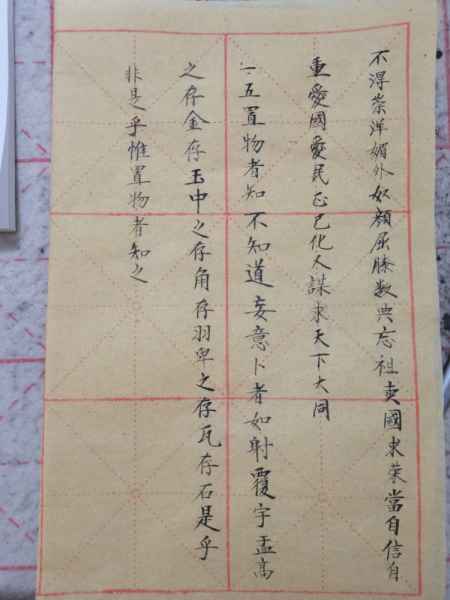 不得崇洋媚外奴顔屈膝数典忘祖賣國求荣當自信自
重愛國愛民正己化人謀求天下大同
一五置物者知不知道妄意卜者如射覆宇盂高
之存金存玉中之存角存羽卑之存瓦存石是乎
非是乎惟置物者知之